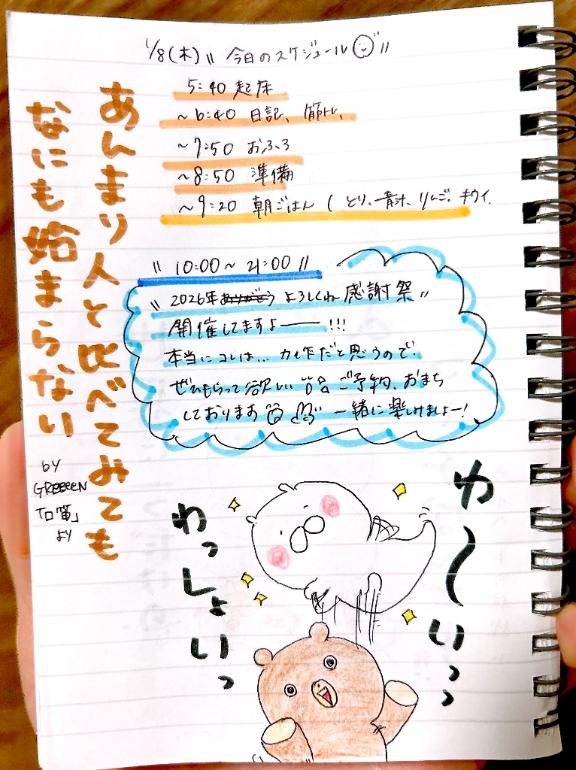 1/8(木) 〝今日のスケジュール〟
5:40 起床
~6:40 日記、筋トレ、
~7:50 おふろ
~8:50 準備
~9:20 朝ごはん ( とり、青汁、りんご、キウイ、
〝10:00~21:00〟
〝2026年ありがとう よろしくね 感謝祭〟
開催してますよ――!!!
本当にコレは… 力作だと思うので
ぜひもらって欲しい ご予約、おまち
しております 一緒に楽しみましょー!
あんまり人と比べてみても
なにも始まらない
by
GReeeeN
「口笛」
より
わ〜いっっ
わっしょいっ